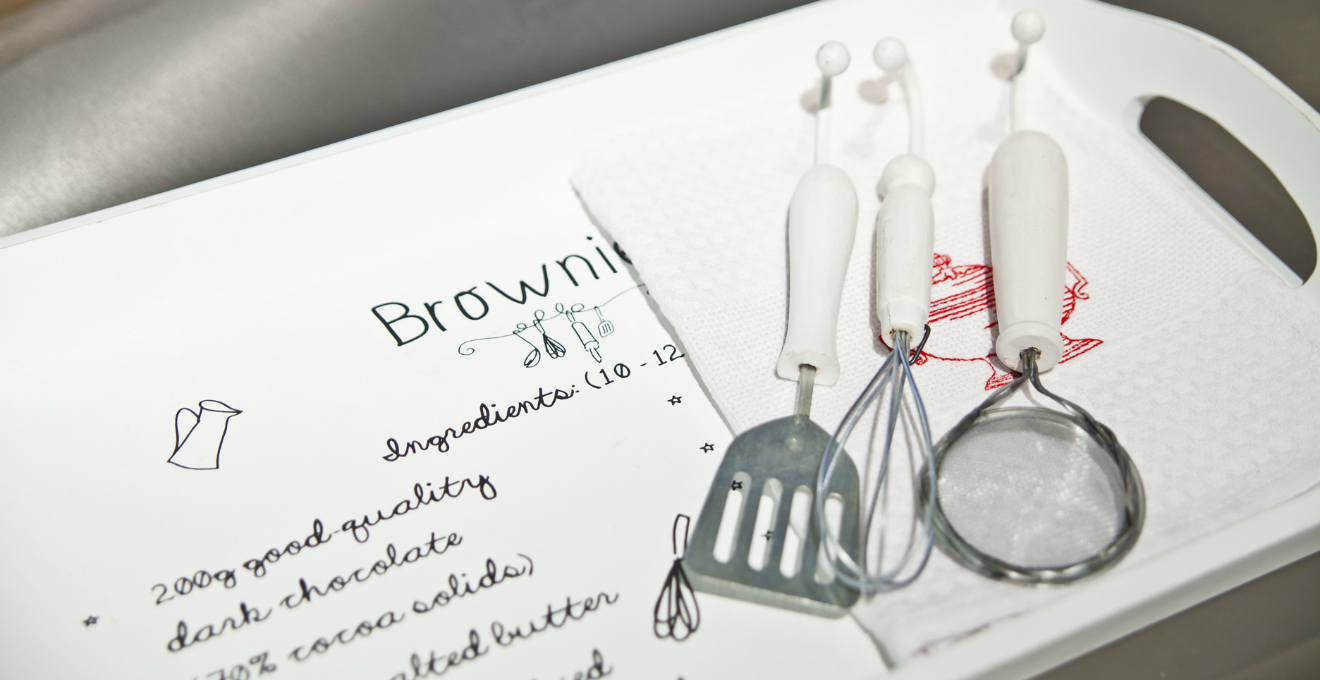 Brownie
Ingredients: (10 - 12
200g good-quality
dark chocolate
(70% cocoa solids)
alted butter